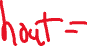 hout =